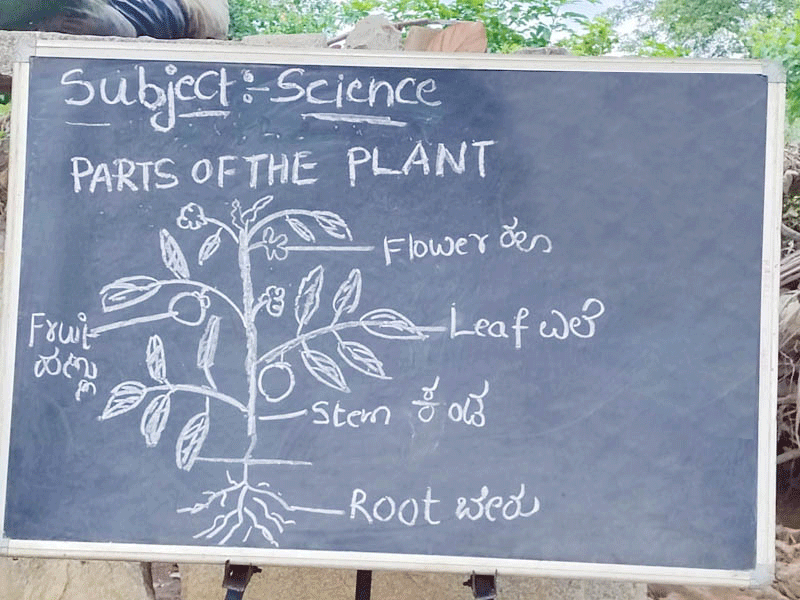 Subject:- Science
PARTS OF THE PLANT
Flower ಹೂ
Fruit
ಹಣ್ಣು
Leaf ಎಲೆ
Stem ಕಂಡ
Root ಬೇರು